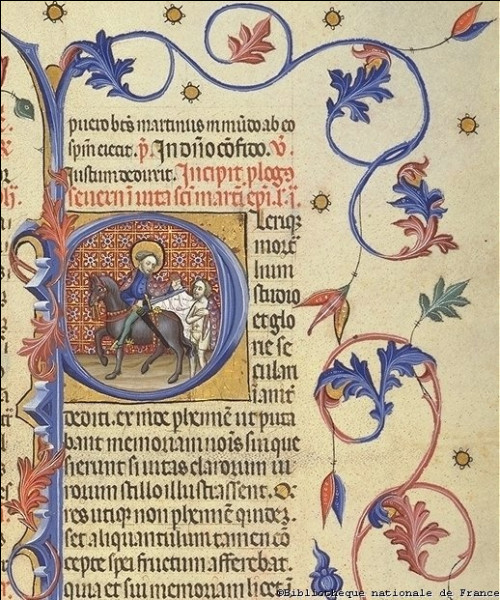 puero bt̄s martinus in mūdo ab eo
sp̄m eiecit. p̄. In dn̄o cōfido. v̄.
Iustum deduxit. Incipit plogs
severi i vita sci marti epi.
lerique
mortā
lium
studio
et glo
rie se
culari
ianit̄
dediti. ex inde phennē ut puta
bant memoriam nois sui que
sierunt si vitas clarorum vi
rorum stillo illustrassent. Q̄
res utique non phennē quidez.
set aliquantulum tamen cō
cepte spei fructum afferebat.
quia et sui memoriam licet ī
©Bibliothèque nationale de France